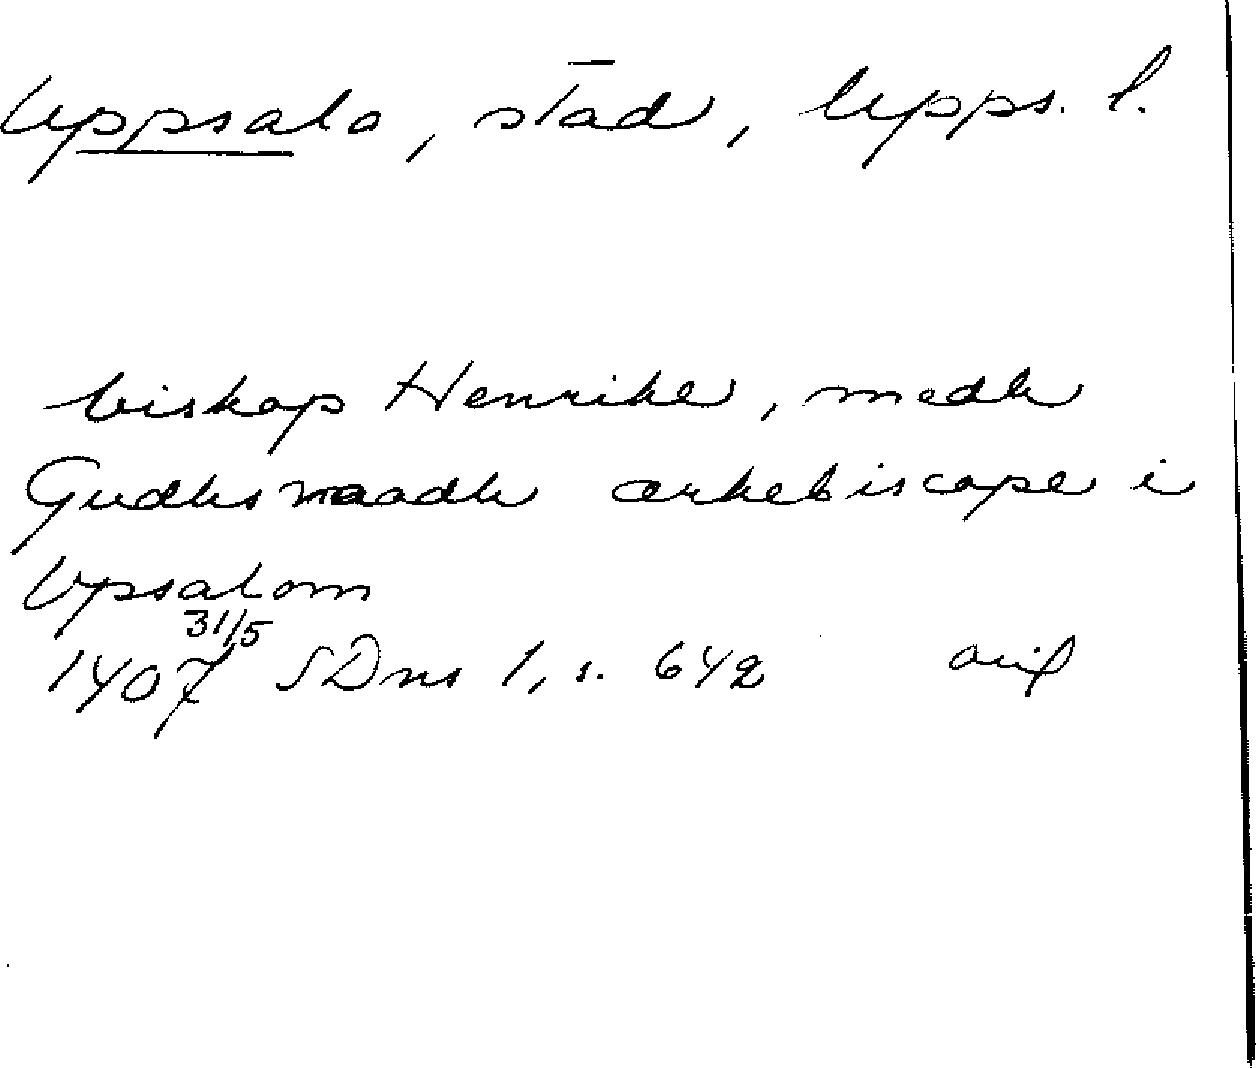 Uppsala, stad, Upps. l.
biskop Henrike, medh
Gudhs naadh ærkebiscope i
Vpsalom
31/5
1407 SDns 1, s. 642